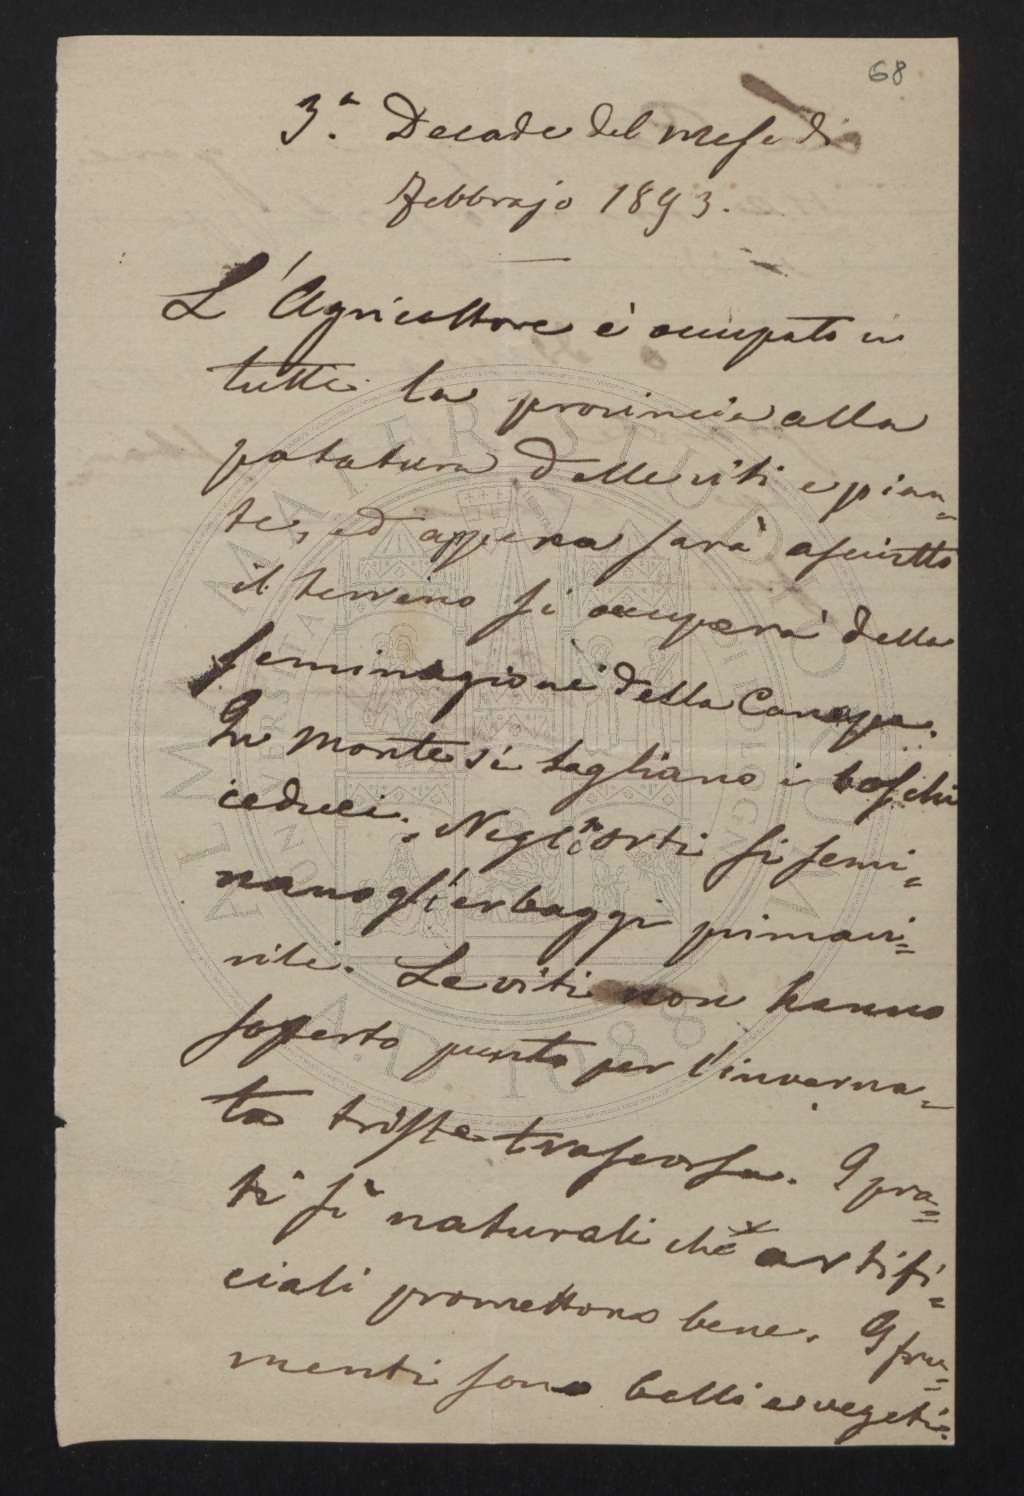 68
3.a Decade del mese di
Febbrajo 1893.
L'Agricoltore è occupato in
tutta la provincia alla
potatura delle viti e pian=
te, ed appena sarà asciutto
il terreno si occuperà della
seminagione della Canapa.
In Monte si tagliano i boschi
cedui. Negli orti si semi=
nano gli erbaggi primave=
rili. Le viti non hanno
soferto punto per l'inverna=
ta triste trascorsa. I pra=
ti sì naturali che artifi=
ciali promettono bene. I fru=
menti sono belli e vegeti.
ALMA MATER STUDIORUM
UNIVERSITÀ DI BOLOGNA
A.D. 1088